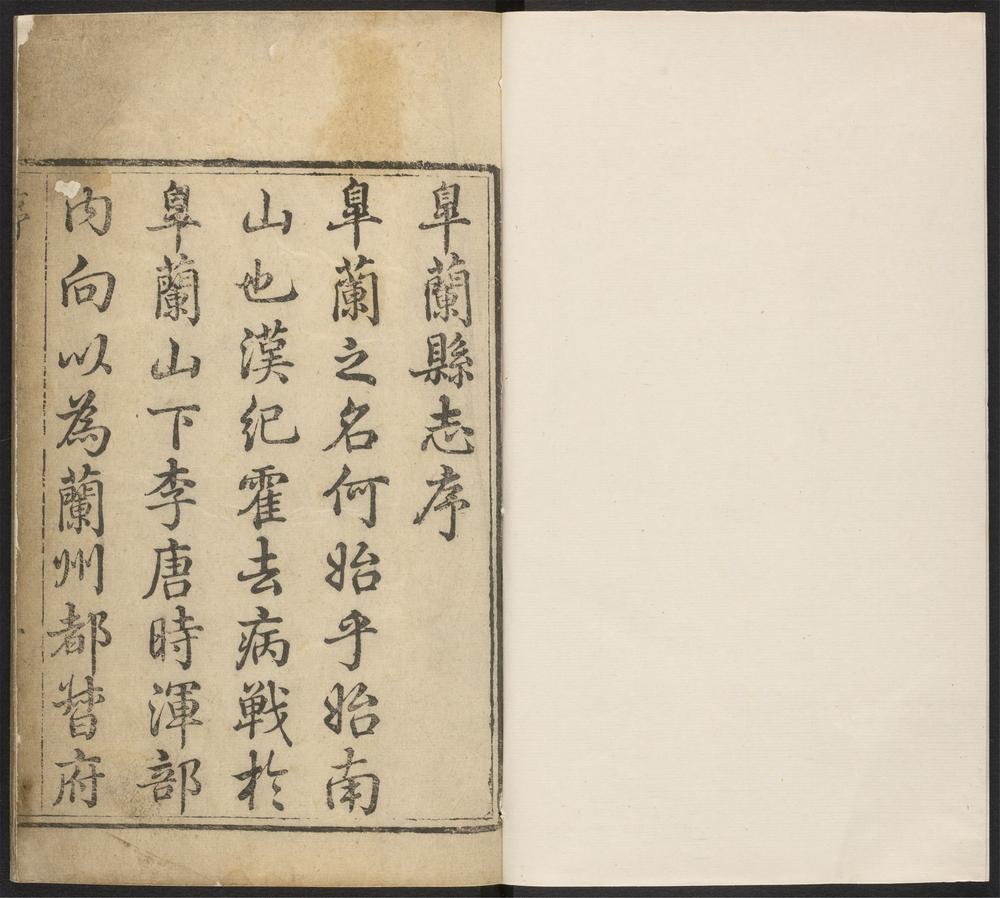 臯蘭縣志序
臯蘭之名何始乎始南
山也漢紀霍去病戰於
臯蘭山下李唐時渾部
內向以為蘭州都督府